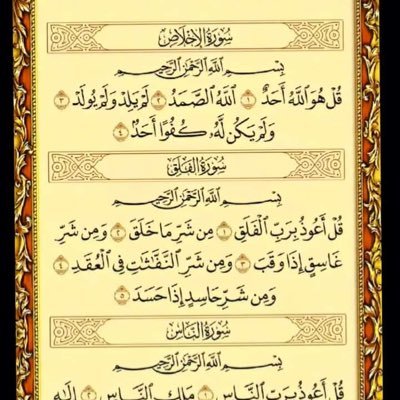 سُورَةُ الإِخْلَاصِ
بِسْمِ ٱللَّهِ ٱلرَّحْمَٰنِ ٱلرَّحِيمِ
قُلْ هُوَ ٱللَّهُ أَحَدٌ ١ ٱللَّهُ ٱلصَّمَدُ ٢ لَمْ يَلِدْ وَلَمْ يُولَدْ ٣
وَلَمْ يَكُن لَّهُۥ كُفُوًا أَحَدٌۢ ٤
سُورَةُ الفَلَقِ
بِسْمِ ٱللَّهِ ٱلرَّحْمَٰنِ ٱلرَّحِيمِ
قُلْ أَعُوذُ بِرَبِّ ٱلْفَلَقِ ١ مِن شَرِّ مَا خَلَقَ ٢ وَمِن شَرِّ
غَاسِقٍ إِذَا وَقَبَ ٣ وَمِن شَرِّ ٱلنَّفَّٰثَٰتِ فِي ٱلْعُقَدِ ٤
وَمِن شَرِّ حَاسِدٍ إِذَا حَسَدَ ٥
سُورَةُ النَّاسِ
بِسْمِ ٱللَّهِ ٱلرَّحْمَٰنِ ٱلرَّحِيمِ
قُلْ أَعُوذُ بِرَبِّ ٱلنَّاسِ ١ مَلِكِ ٱلنَّاسِ ٢ إِلَٰهِ